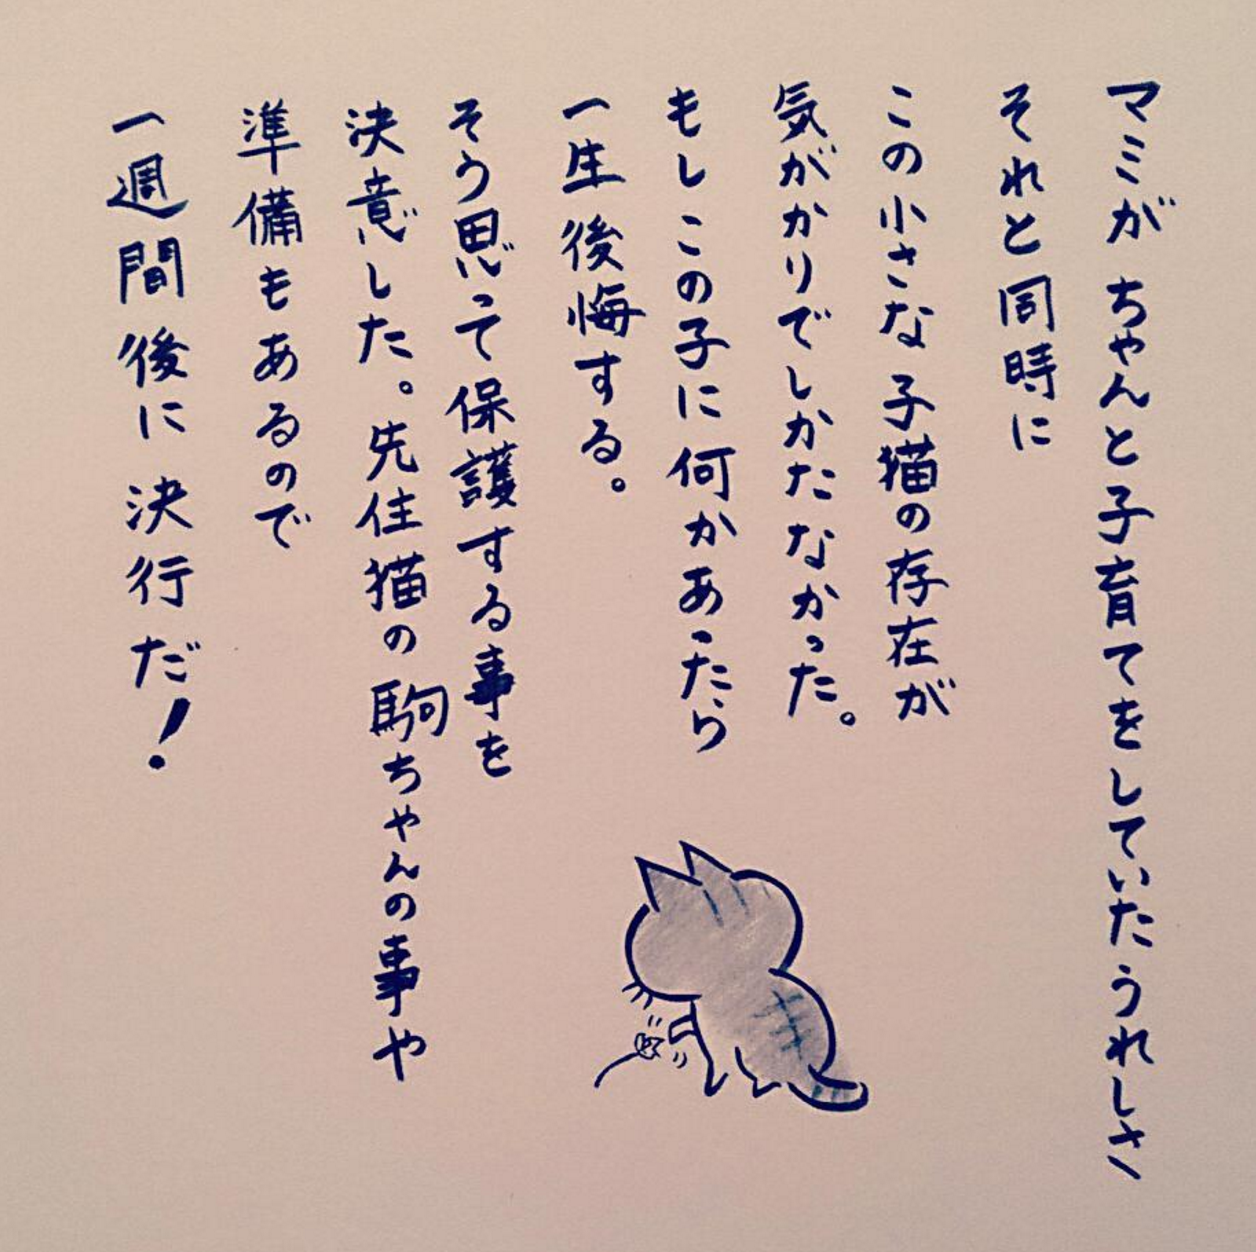 マミが ちゃんと子育てをしていたうれしさ
それと同時に
この小さな子猫の存在が
気がかりでしかたなかった。
もしこの子に何かあったら
一生後悔する。
そう思って保護する事を
決意した。先住猫の駒ちゃんの事や
準備もあるので
一週間後に決行だ!